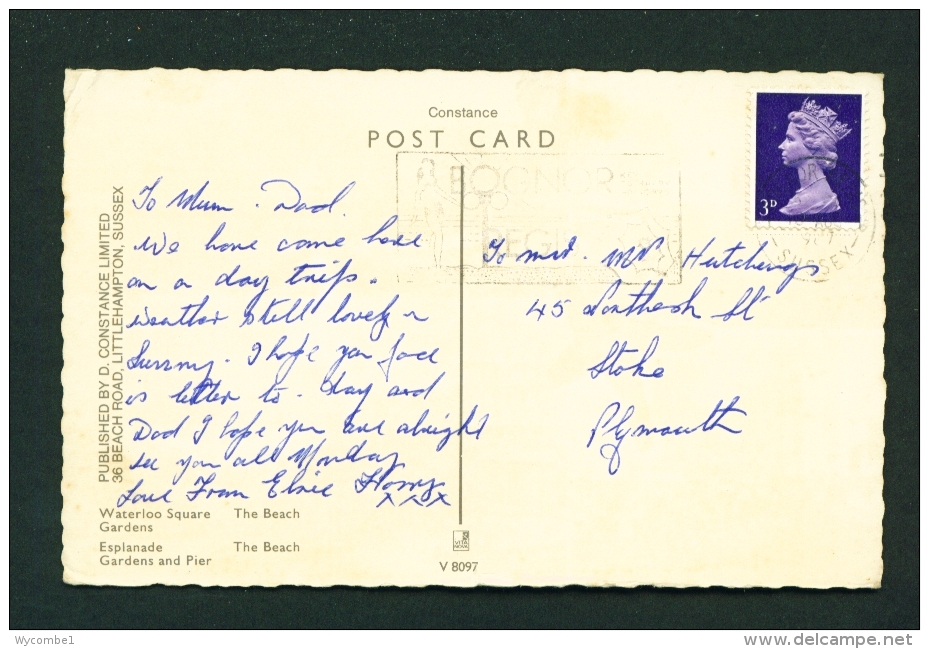 Constance
POST CARD
BOGNOR
REGIS
3D
SUSSEX
PUBLISHED BY D. CONSTANCE LIMITED
36 BEACH ROAD, LITTLEHAMPTON, SUSSEX
To Mum. Dad.
We have come here
on a day trip.
Weather still lovely
Sunny. I hope you face
is better to-day and
Dad I hope you are alright
see you all Monday
Love From Elsie
xxx
To mr. mrs Hutchings
45 St
Stoke
Plymouth
Waterloo Square The Beach
Gardens
Esplanade The Beach
Gardens and Pier
VITA
NOVA
V 8097
Wycombe1
www.delcampe.net